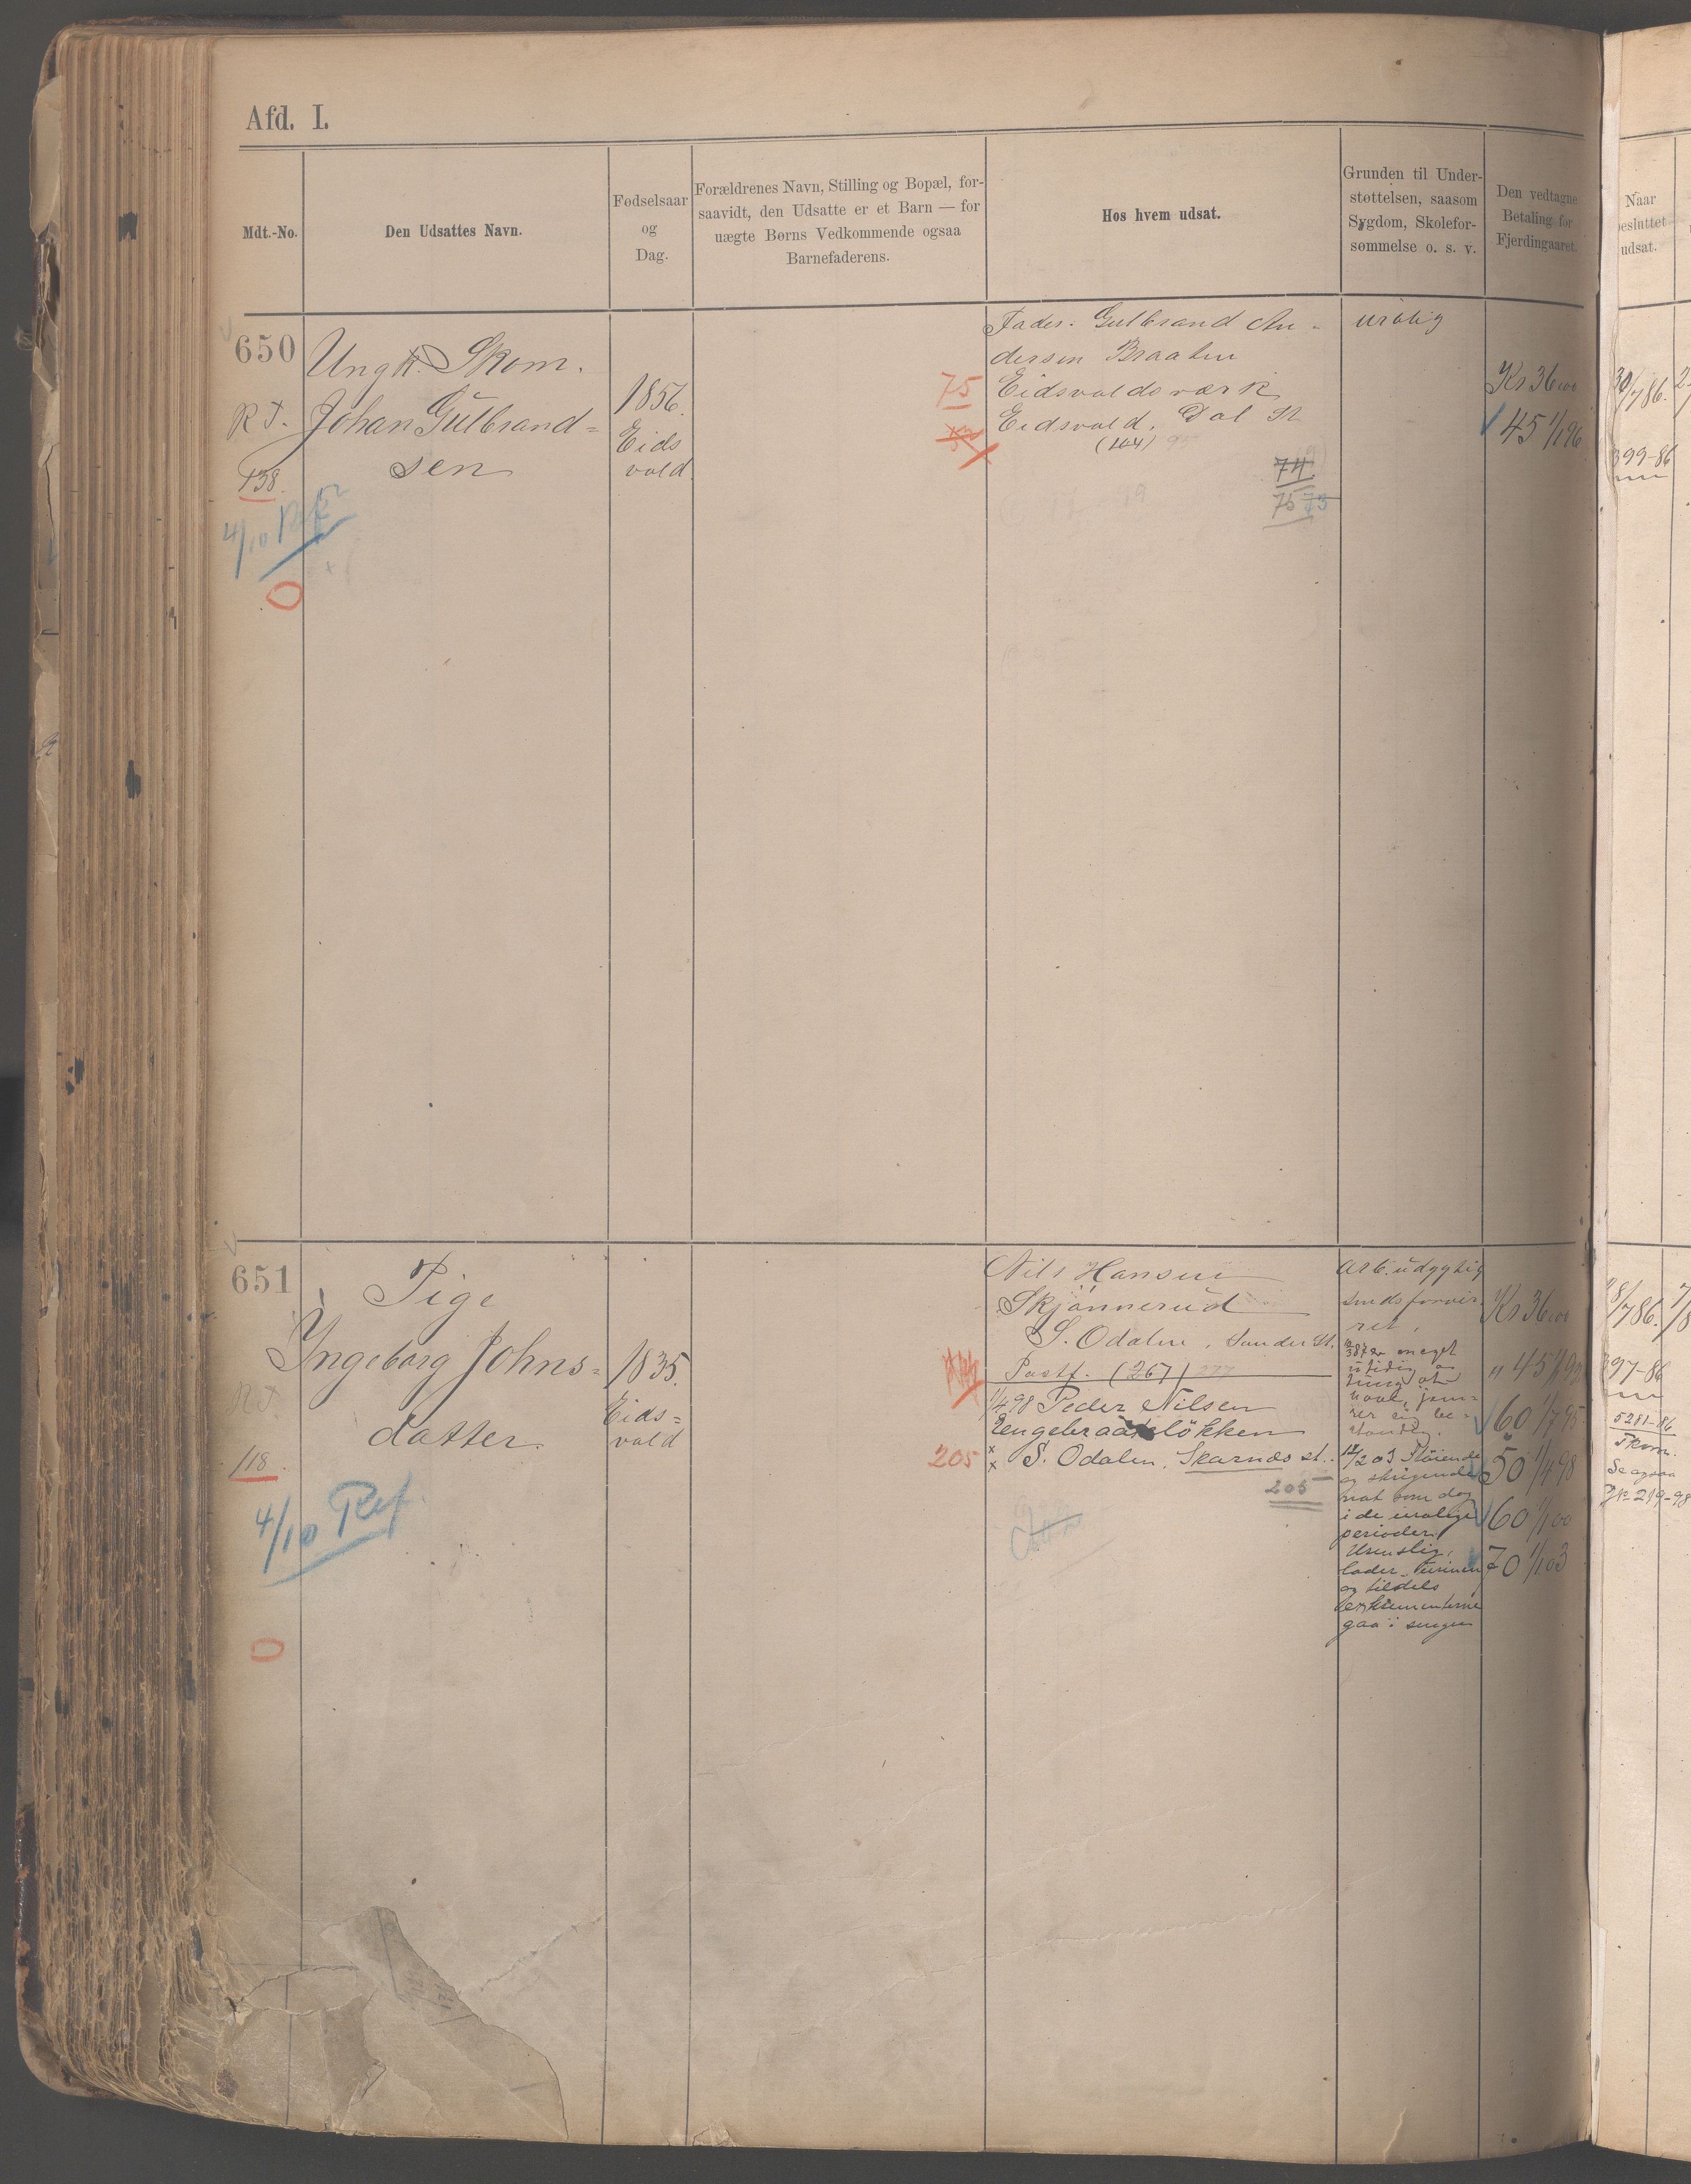 Afd. I.
Mdt.-No.
Den Udsattes Navn.
Fødselsaar
og
Dag.
Forældrenes Navn, Stilling og Bopæl, for-
saavidt, den Udsatte er et Barn — for
uægte Børns Vedkommende ogsaa
Barnefaderens.
Hos hvem udsat.
Grunden til Under-
støttelsen, saasom
Sygdom, Skolefor-
sømmelse o. s. v.
Den vedtagne
Betaling for
Fjerdingaaret.
Naar
besluttet
udsat.
650
Ungk. Skom.
Johan Gulbrand-
sen
R T.
138.
4/10
0
1856.
Eids
vold
Fader. Gulbrand An-
dersen Braaten
75 Eidsvoldsværk
Eidsvold. Dal St
(164) 95
74
75 73
urolig
Kr 36 00
45 1/1 96
30/7 86.
399-86
651
Pige
Ingeborg Johns-
datter.
R T.
118.
4/10 Ref.
0
1835.
Eids-
vold
Nils Hansen
Skjønnerud
S. Odalen, Sander St.
Postf. (267) 277
1/4 98 Peder Nilsen
Engebraadsløkken
205 S. Odalen, Skarnæs st.
205
Arb. udygtig
sindsforvir
ret.
er meget
12/2 03 Støiende
og skrigende
nat som dag
i de urolige
perioder.
Urenslig,
lader urinen
og tildels
exkrementerne
gaa i sengen
Kr 36 00
" 45 1/1 92
60 1/7 95
50 1/4 98
60 1/1 00
70 1/1 03
8/7 86.
397-86
5281-86
Skom.
Se ogsaa
Jk 219-98